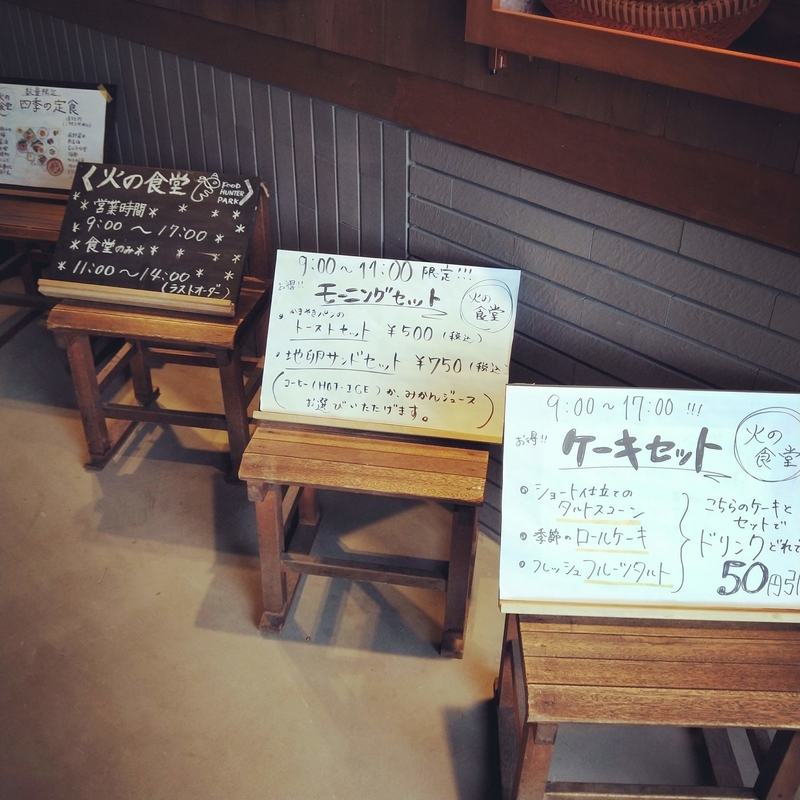 数量限定
四季の定食
火の食堂
FOOD
HUNTER
PARK
営業時間
9:00 〜 17:00
食堂のみ
11:00 〜 14:00
(ラストオーダー)
9:00 〜 11:00 限定!!!
お得!! モーニングセット
火の
食堂
かまやきパンの
トーストセット ¥500 (税込)
地卵サンドセット ¥750 (税込
コーヒー(HOT・ICE) か、みかんジュース
お選びいただけます。
9:00 〜 17:00 !!!
お得!! ケーキセット
火の
食堂
ショート仕立ての
タルトスコーン
季節のロールケーキ
フレッシュフルーツタルト
こちらのケーキと
セットで
ドリンクどれで
50円引